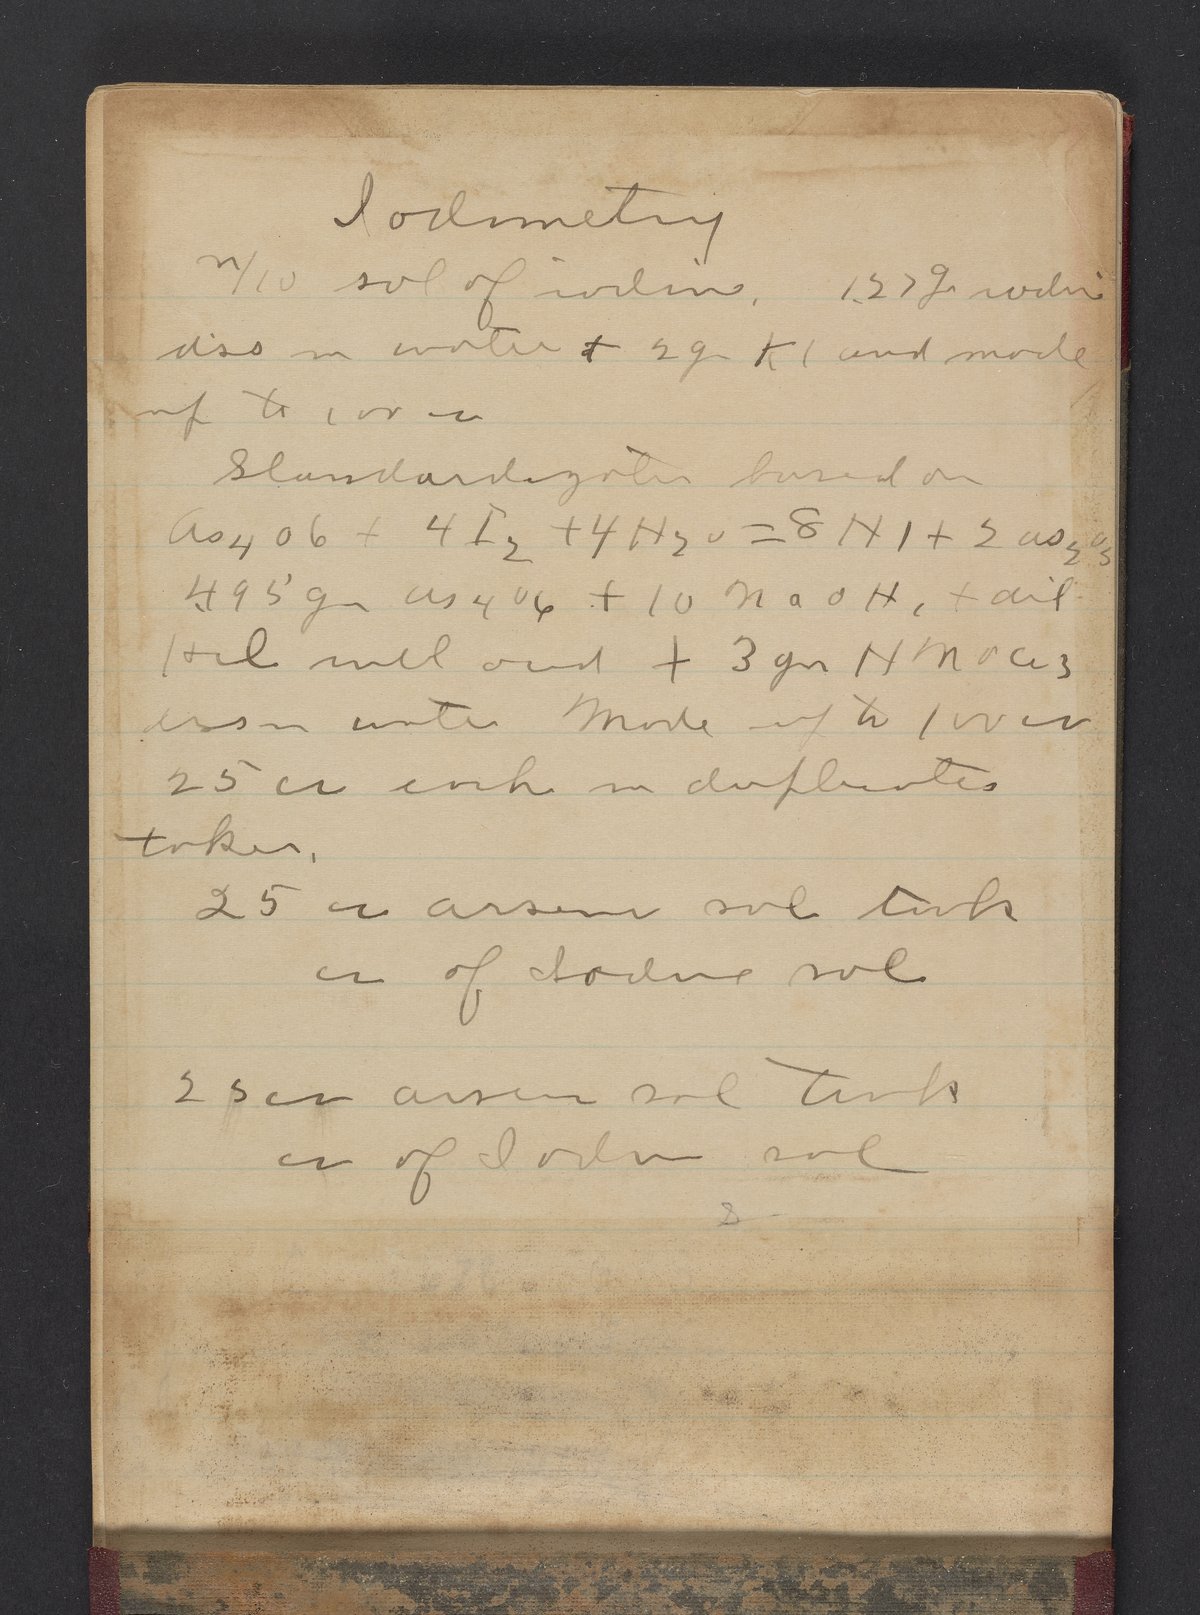 Iodimetry
n/10 sol of iodin. 1.27g iodin
diss in water + 2 gm KI and made
up to 100 cc
Standardization based on
As4O6 + 4I2 + 4H2O = 8HI + 2As2O5
.495 gm As4O6 + 10 NaOH, + dil
HCl until acid + 3 gm HNaCO3
diss in water Made up to 100 cc
25 cc each in duplicates
taken.
25 cc arsenic sol took
cc of Iodine sol
25 cc arsenic sol took
cc of Iodin sol